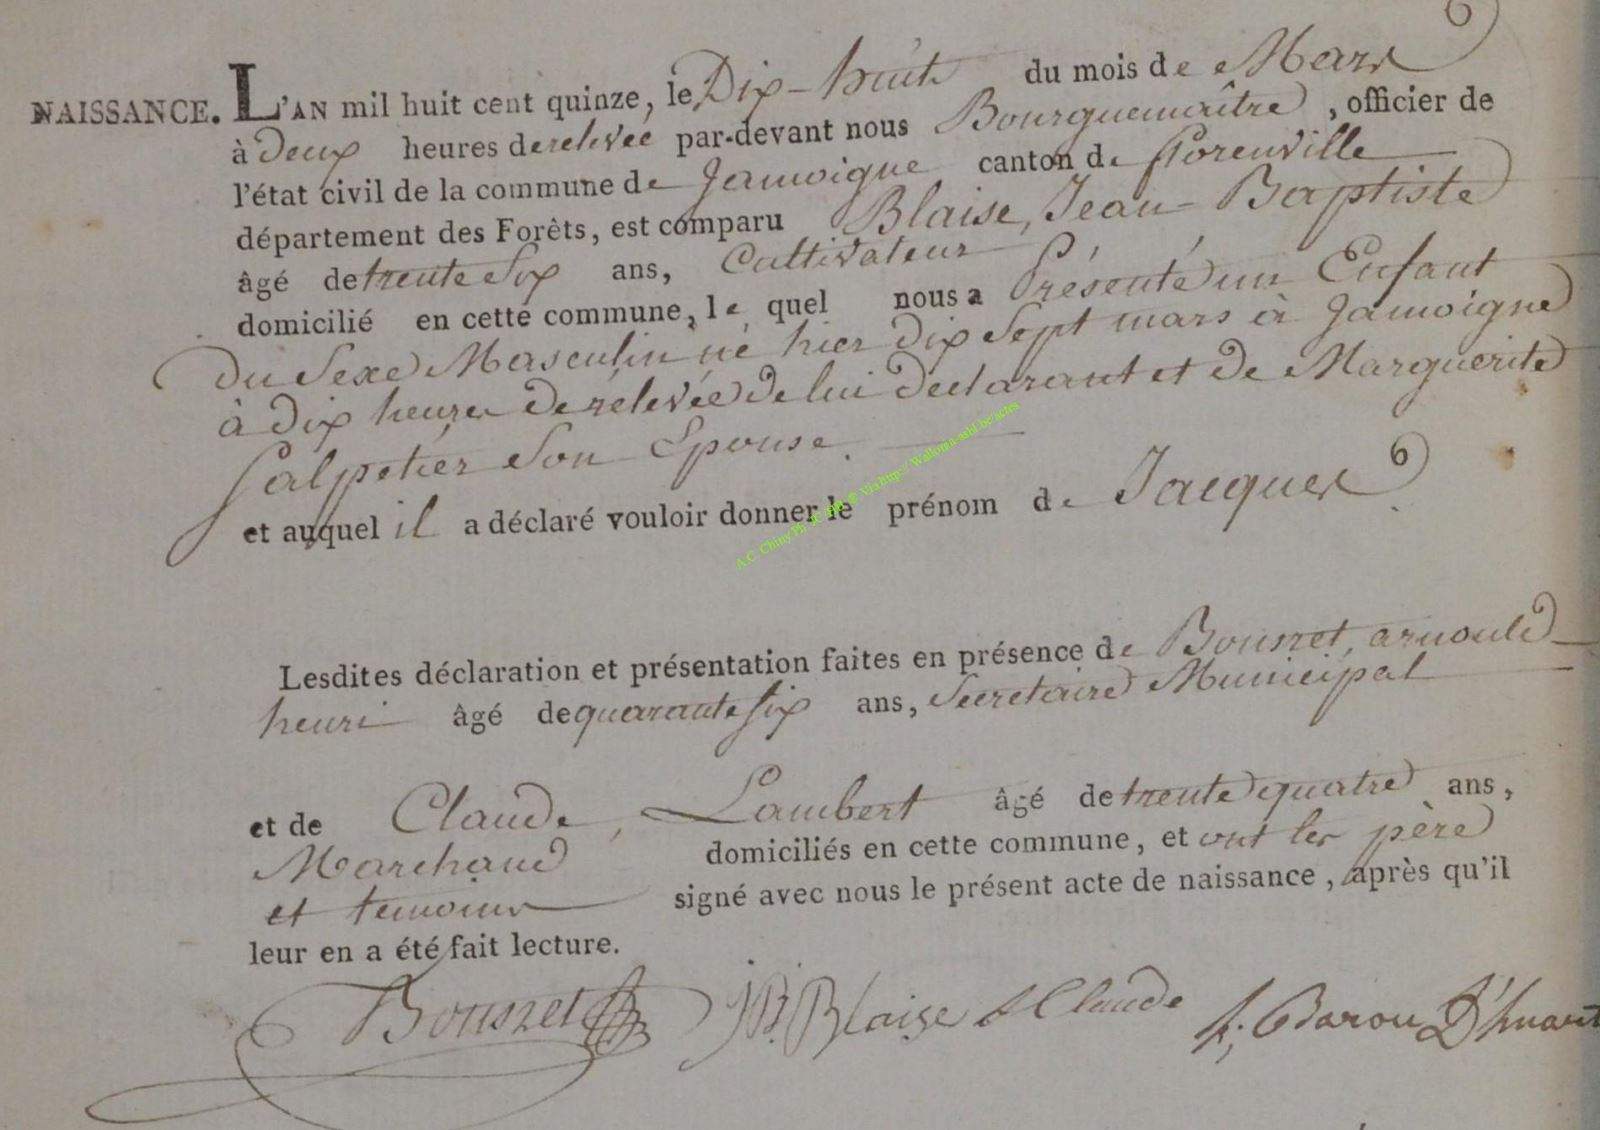 NAISSANCE. L'AN mil huit cent quinze, le Dix-huit du mois de Mars
à deux heures de relevée par-devant nous Bourguemaître, officier de
l'état civil de la commune de Jamoigne canton de florenville
département des Forêts, est comparu Blaise, Jean-Baptiste
âgé de trente Six ans, Cultivateur
domicilié en cette commune, le quel nous a Présenté un Enfant
du Sexe Masculin né hier dix Sept mars à Jamoigne
à dix heures de rélevée de lui declarant et de Marguerite
Salpétiér Son Epouse.
et auquel il a déclaré vouloir donner le prénom de Jacques
Lesdites déclaration et présentation faites en présence de Bousret, arnould
henri âgé de quarante six ans, Secretaire Municipal
et de Claude, Lambert âgé de trente quatre ans,
Marchand domiciliés en cette commune, et ont les père
et temoins signé avec nous le présent acte de naissance, après qu'il
leur en a été fait lecture.
Bousret JB Blaise L Claude Baron D'huart